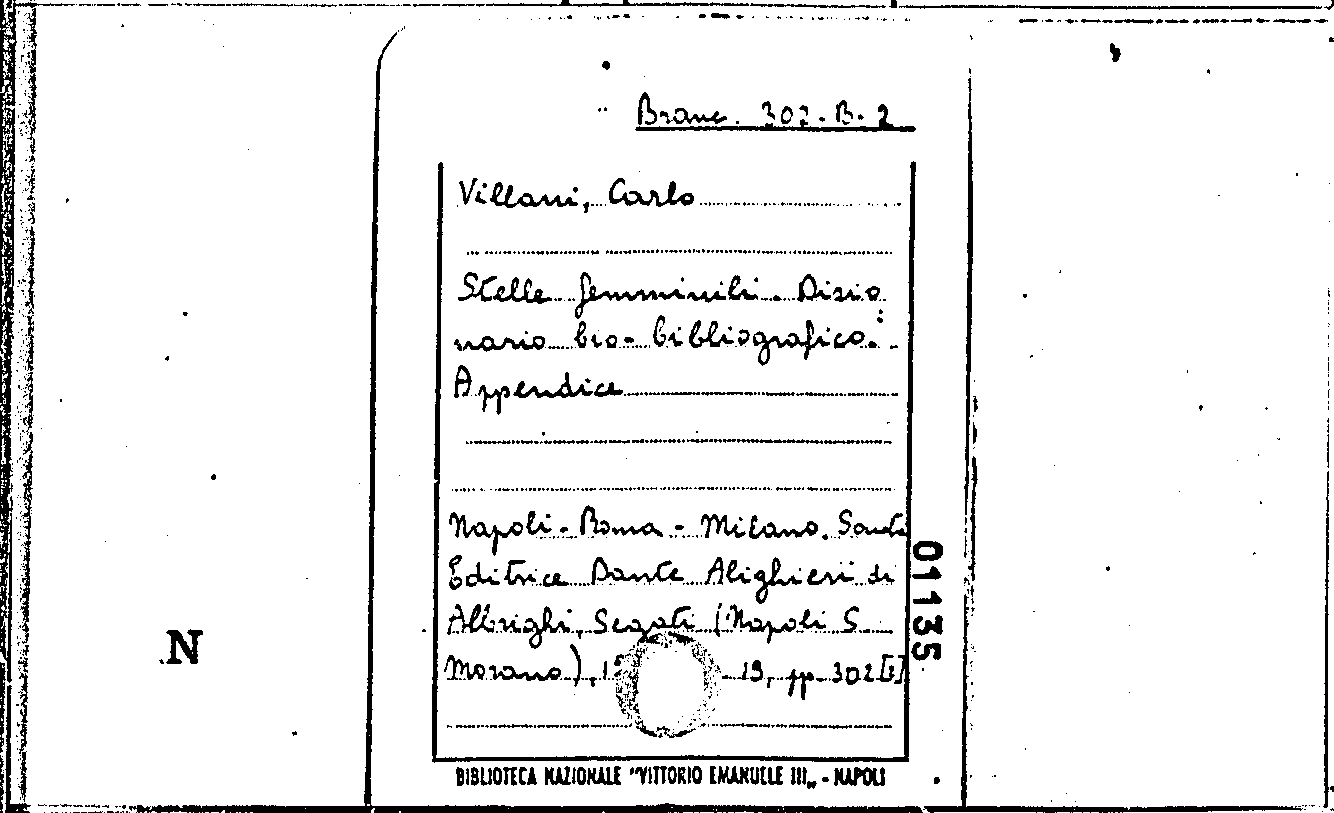 Branc. 302-B-2
Villani, Carlo
Stelle femminili. Dizio
nario bio-bibliografico.
Appendice
Napoli-Roma-Milano.
Editrice Dante Alighieri di
Albrighi, Segati (Napoli S.
Morano), 19, pp. 302
01135
N
BIBLIOTECA NAZIONALE "VITTORIO EMANUELE III„ - NAPOLI